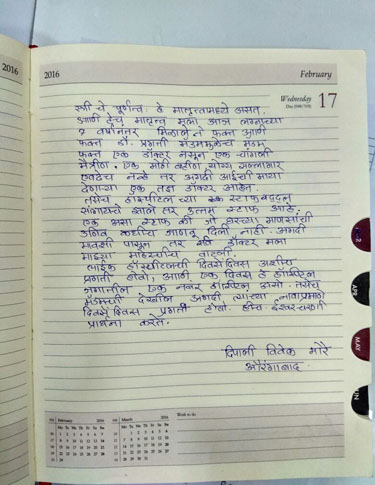 2016
2016
February
Wednesday
17
स्त्री चे पूर्णत्व हे मातृत्वामध्ये असत.
आणि तेच मातृत्व मला आज लग्नाच्या
९ वर्षानंतर मिळाले ते फक्त आणि
फक्त डॉ. प्रगती मॅडममुळेच मॅडम
फक्त एक डॉक्टर नसून एक चांगली
मैत्रीण. एक मोठी बहीण योग्य सल्लागार
एवढेच नव्हे तर अगदी आईची माया
देणाऱ्या एक तज्ञ डॉक्टर आहेत.
तसेच हॉस्पिटल च्या स्टाफबद्दल
सांगायचे झाले तर उत्तम स्टाफ आहे.
एक असा स्टाफ की जो घरच्या माणसांची
उणिव कधीच जाणवू दिली नाही. अगदी
मावशी पासून तर डॉक्टर मला
माझ्या माहेरचीच वाटली.
हॉस्पिटलची दिवसेंदिवस अशीच
प्रगती होवो. आणि एक दिवस हे हॉस्पिटल
जगातील एक नंबर हॉस्पिटल असो. तसेच
मॅडमची देखील अगदी त्यांच्या नावाप्रमाणे
दिवसेंदिवस प्रगती होवो हीच ईश्वरचरणी
प्रार्थना करते.
दिपाली विवेक मोरे
औरंगाबाद.
APR
MAY
JUN
February 2016
March 2016
Work to do